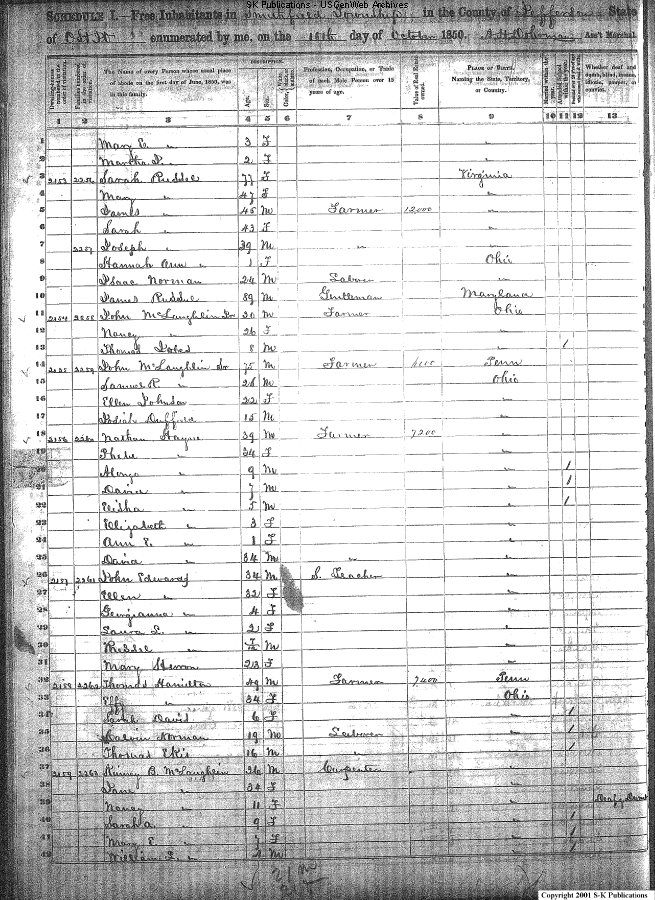 SK Publications - USGenWeb Archives
SCHEDULE I.—Free Inhabitants in Smithfield Township in the County of Jefferson State
of Ohio enumerated by me, on the 16th day of October 1850. Ass't Marshal.
DESCRIPTION.
The Name of every Person whose usual place of abode on the first day of June, 1850, was in this family.
Age.
Sex.
Profession, Occupation, or Trade of each Male Person over 15 years of age.
Value of Real Estate owned.
PLACE OF BIRTH. Naming the State, Territory, or Country.
Whether deaf and dumb, blind, insane, idiotic, pauper, or convict.
1 2 3 4 5 6 7 8 9 10 11 12 13
1 Mary E. " 3 F "
2 Martha J. " 2 F "
3 2153 2256 Sarah Ruddle 77 F Virginia
4 Mary " 47 F "
5 James " 45 M Farmer 12,000 "
6 Sarah " 43 F "
7 2257 Joseph " 39 M " "
8 Hannah Ann " 1 F Ohio
9 Isaac Norman 24 M Labor "
10 James Ruddle 59 M Gentleman Maryland
11 2154 2258 John McLaughlin Jr 30 M Farmer Ohio
12 Nancy " 26 F "
13 Thomas 8 M " 1
14 2155 2259 John McLaughlin Sr 75 M Farmer Penn
15 Samuel R. " 28 M Ohio
16 Ellen Johnson 22 F "
17 Josiah 15 M "
18 2156 2260 Nathan Hayne 39 M Farmer 7200 "
19 " 34 F "
20 Alonzo " 9 M " 1
21 David " 7 M " 1
22 Elisha " 5 M " 1
23 Elizabeth " 3 F "
24 Ann E. " 1 F "
25 David " 34 M " "
26 2157 2261 John Edwards 34 M S. Teacher "
27 Ellen " 32 F "
28 Georgianna " 4 F "
29 Laura L. " 2 F "
30 " M "
31 Mary 23 F "
32 2158 2262 Thomas Hamilton 49 M Farmer 7,400 Penn
33 " 34 F Ohio
34 Sarah David 6 F " 1
35 Calvin Norman 19 M Laborer " 1
36 Thomas 16 M " " 1
37 2159 2263 B. McLaughlin 36 M Carpenter "
38 Jane " 34 F "
39 Nancy " 11 F " Deaf & Dumb
40 Sarah A. " 9 F " 1
41 Mary E. " 7 F " 1
42 William " M " 1
21 M
Copyright 2001 S-K Publications